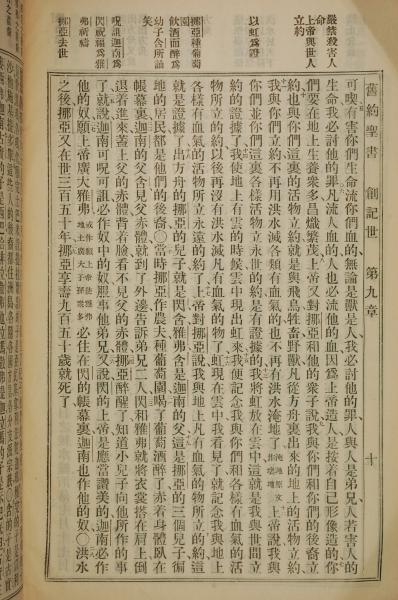 舊約聖書 創記世 第九章 十
嚴禁殺害人命
上帝與世人立約
以虹爲證
挪亞種葡萄園
飲酒而醉爲
幼子含所譏笑
呪詛迦南爲
閃祝福爲雅
弗祈禱
挪亞去世
可喫有害你們生命流你們血的無論是獸是人我必討他的罪人與人是弟兄人若害人的
生命我必討他的罪凡流人血的人也必流他的血因爲上帝造人是按着自己形像造的你
們要在地上生養衆多昌熾繁茂上帝又對挪亞和他的衆子說我與你們和你們的後裔立
約也與你們這裏的活物立約就是與飛鳥牲畜野獸凡從方舟裏出來的地上的活物立約
我與你們立約不再用洪水滅各類有血氣的也不再有洪水淹地了上帝說我與
你們並你們這裏各樣活物立永世的約是有證據的我將虹放在雲中這就是我與世間立
約的證據了我使地上有雲的時候雲中現出虹來我便記念我與你們和各樣有血氣的活
物所立的約以後再沒有洪水滅凡有血氣的物了虹現在雲中我看見了就記念我與地上
各樣有血氣的活物所立永遠的約了上帝對挪亞說我與地上凡有血氣的物所立的約這
就是證據了出方舟的挪亞的兒子就是閃含雅弗含是迦南的父這是挪亞的三個兒子徧
地的居民都是他們的後裔〇當時挪亞作農夫種葡萄園喝了葡萄酒醉了赤着身體臥在
帳幕裏迦南的父含見父赤體就到了外邊告訴弟兄二人閃和雅弗就將衣裳搭在肩上倒
退着進來蓋上父的赤體背着臉看不見父的赤體挪亞醉醒了知道小兒子向他所作的事
了就說迦南可呪可詛必作奴中的奴服事他弟兄又說閃的上帝是應當讚美的迦南必作
他的奴願上帝廣大雅弗必住在閃的帳幕裏迦南也作他的奴〇洪水
之後挪亞又在世三百五十年挪亞享壽九百五十歲就死了